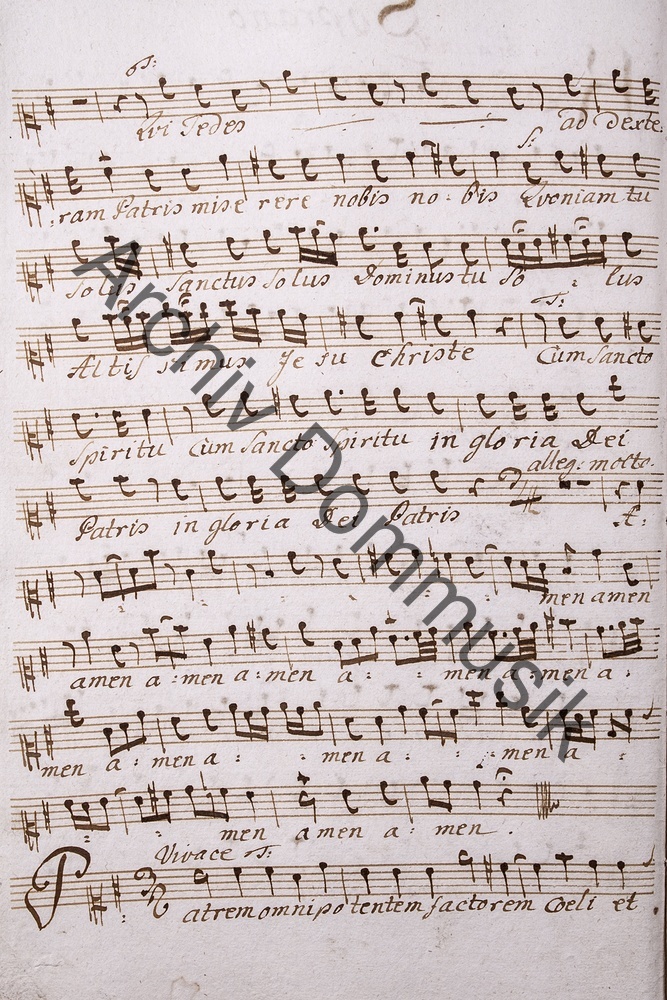 Soprano
T:
Qui Sedes ad dexte
S:
:ram Patris mise rere nobis no: bis Qvoniam tu
Solus Sanctus Solus Dominus tu So : lus
T:
Altis simus Je su Christe Cum Sancto
Spiritu Cum Sancto Spiritu in gloria Dei
alleg: molto.
Patris in gloria Dei Patris A:
men amen
amen a:men a:men a: : men a:men a:
men a:men a: : men a: : men a :
: : men amen a: men .
Vivace T:
Patrem omnipotentem factorem Coeli et
Archiv Dommusik